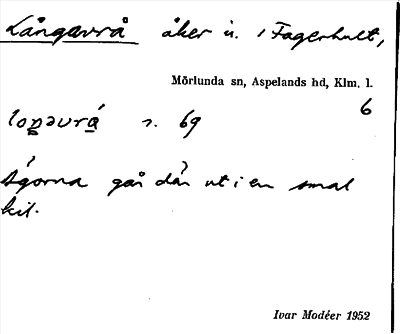 Långavrå åker u. i Fagerhult,
Mörlunda sn, Aspelands hd, Klm. l.
6
loŋəvrá s. 69
ägorna går där ut i en smal
kil.
Ivar Modéer 1952